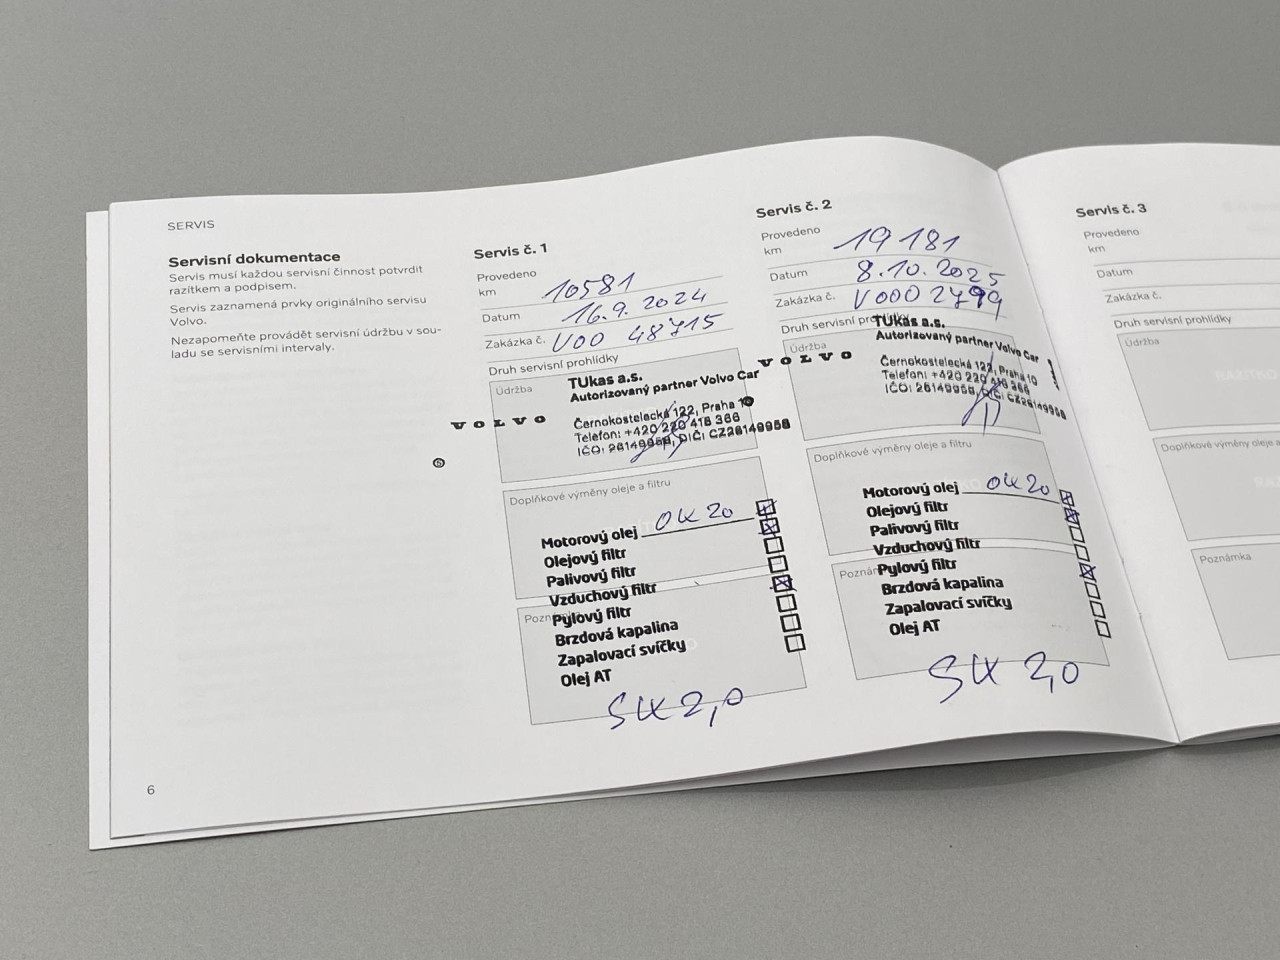 SERVIS
Servisní dokumentace
Servis musí každou servisní činnost potvrdit
razítkem a podpisem.
Servis zaznamená prvky originálního servisu
Volvo.
Nezapomeňte provádět servisní údržbu v sou-
ladu se servisními intervaly.
6
Servis č. 1
Provedeno
km 10581
Datum 16.9.2024
Zakázka č. V00 48715
Druh servisní prohlídky
Údržba
VOLVO
TUkas a.s.
Autorizovaný partner Volvo Car
Černokostelecká 122, Praha 10
Telefon: +420 220 416 366
IČO: 26149958, DIČ: CZ26149958
6
Doplňkové výměny oleje a filtru
Motorový olej 0W20
Olejový filtr
Palivový filtr
Vzduchový filtr
Pylový filtr
Brzdová kapalina
Zapalovací svíčky
Olej AT
SW 2,0
Servis č. 2
Provedeno
km 19181
Datum 8.10.2025
Zakázka č. V000 2799
Druh servisní prohlídky
Údržba
VOLVO
TUkas a.s.
Autorizovaný partner Volvo Car
Černokostelecká 122, Praha 10
Telefon: +420 220 416 366
IČO: 26149958, DIČ: CZ26149958
Doplňkové výměny oleje a filtru
Motorový olej 0W20
Olejový filtr
Palivový filtr
Vzduchový filtr
Pylový filtr
Brzdová kapalina
Zapalovací svíčky
Olej AT
SW 2,0
Servis č. 3
Provedeno
km
Datum
Zakázka č.
Druh servisní prohlídky
Údržba
Doplňkové výměny oleje a
Poznámka